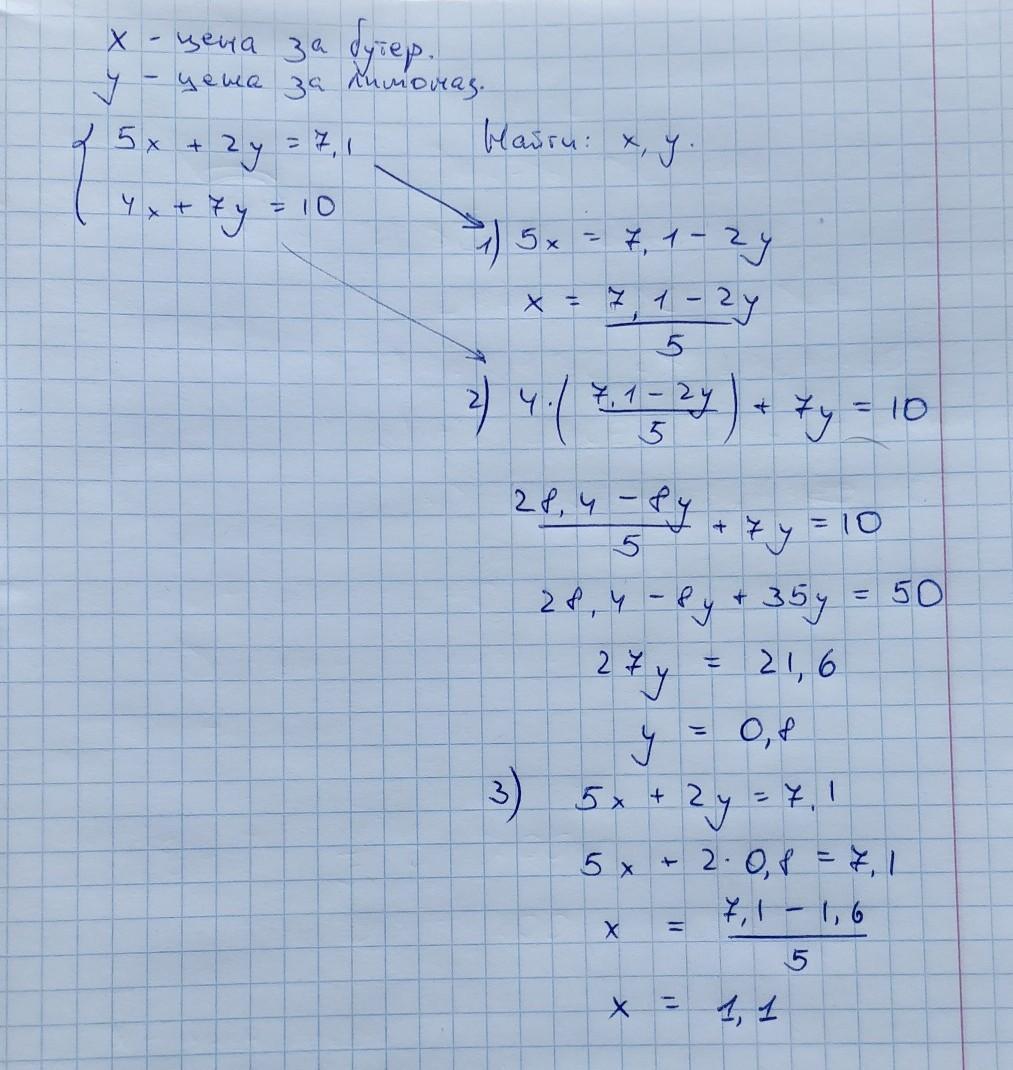 x - цена за бутер.
y - цена за лимонад.
5x + 2y = 7,1
4x + 7y = 10
Найти: x, y.
1) 5x = 7,1 - 2y
x = (7,1 - 2y)/5
2) 4·((7,1 - 2y)/5) + 7y = 10
(28,4 - 8y)/5 + 7y = 10
28,4 - 8y + 35y = 50
27y = 21,6
y = 0,8
3) 5x + 2y = 7,1
5x + 2·0,8 = 7,1
x = (7,1 - 1,6)/5
x = 1,1